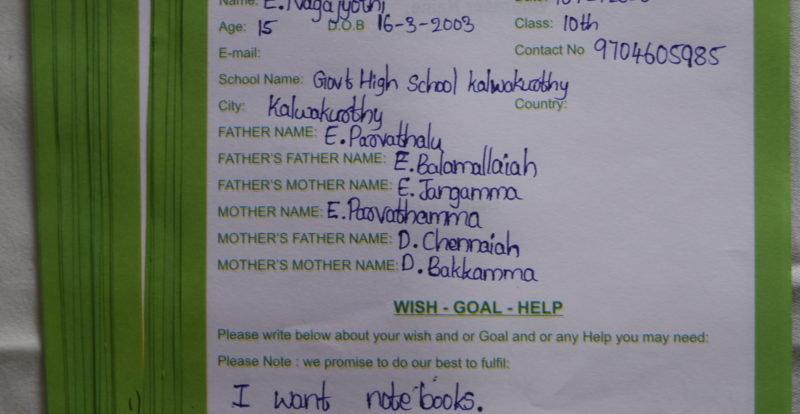 Name: E. Nagajyothi
Age: 15 D.O.B 16-3-2003 Class: 10th
E-mail: Contact No 9704605985
School Name: Govt High School Kalwakurthy
City: Kalwakurthy Country:
FATHER NAME: E. Parvathalu
FATHER'S FATHER NAME: E. Balamallaiah
FATHER'S MOTHER NAME: E. Jangamma
MOTHER NAME: E. Parvathamma
MOTHER'S FATHER NAME: D. Chennaiah
MOTHER'S MOTHER NAME: D. Bakkamma
WISH - GOAL - HELP
Please write below about your wish and or Goal and or any Help you may need:
Please Note : we promise to do our best to fulfil:
I want note books.